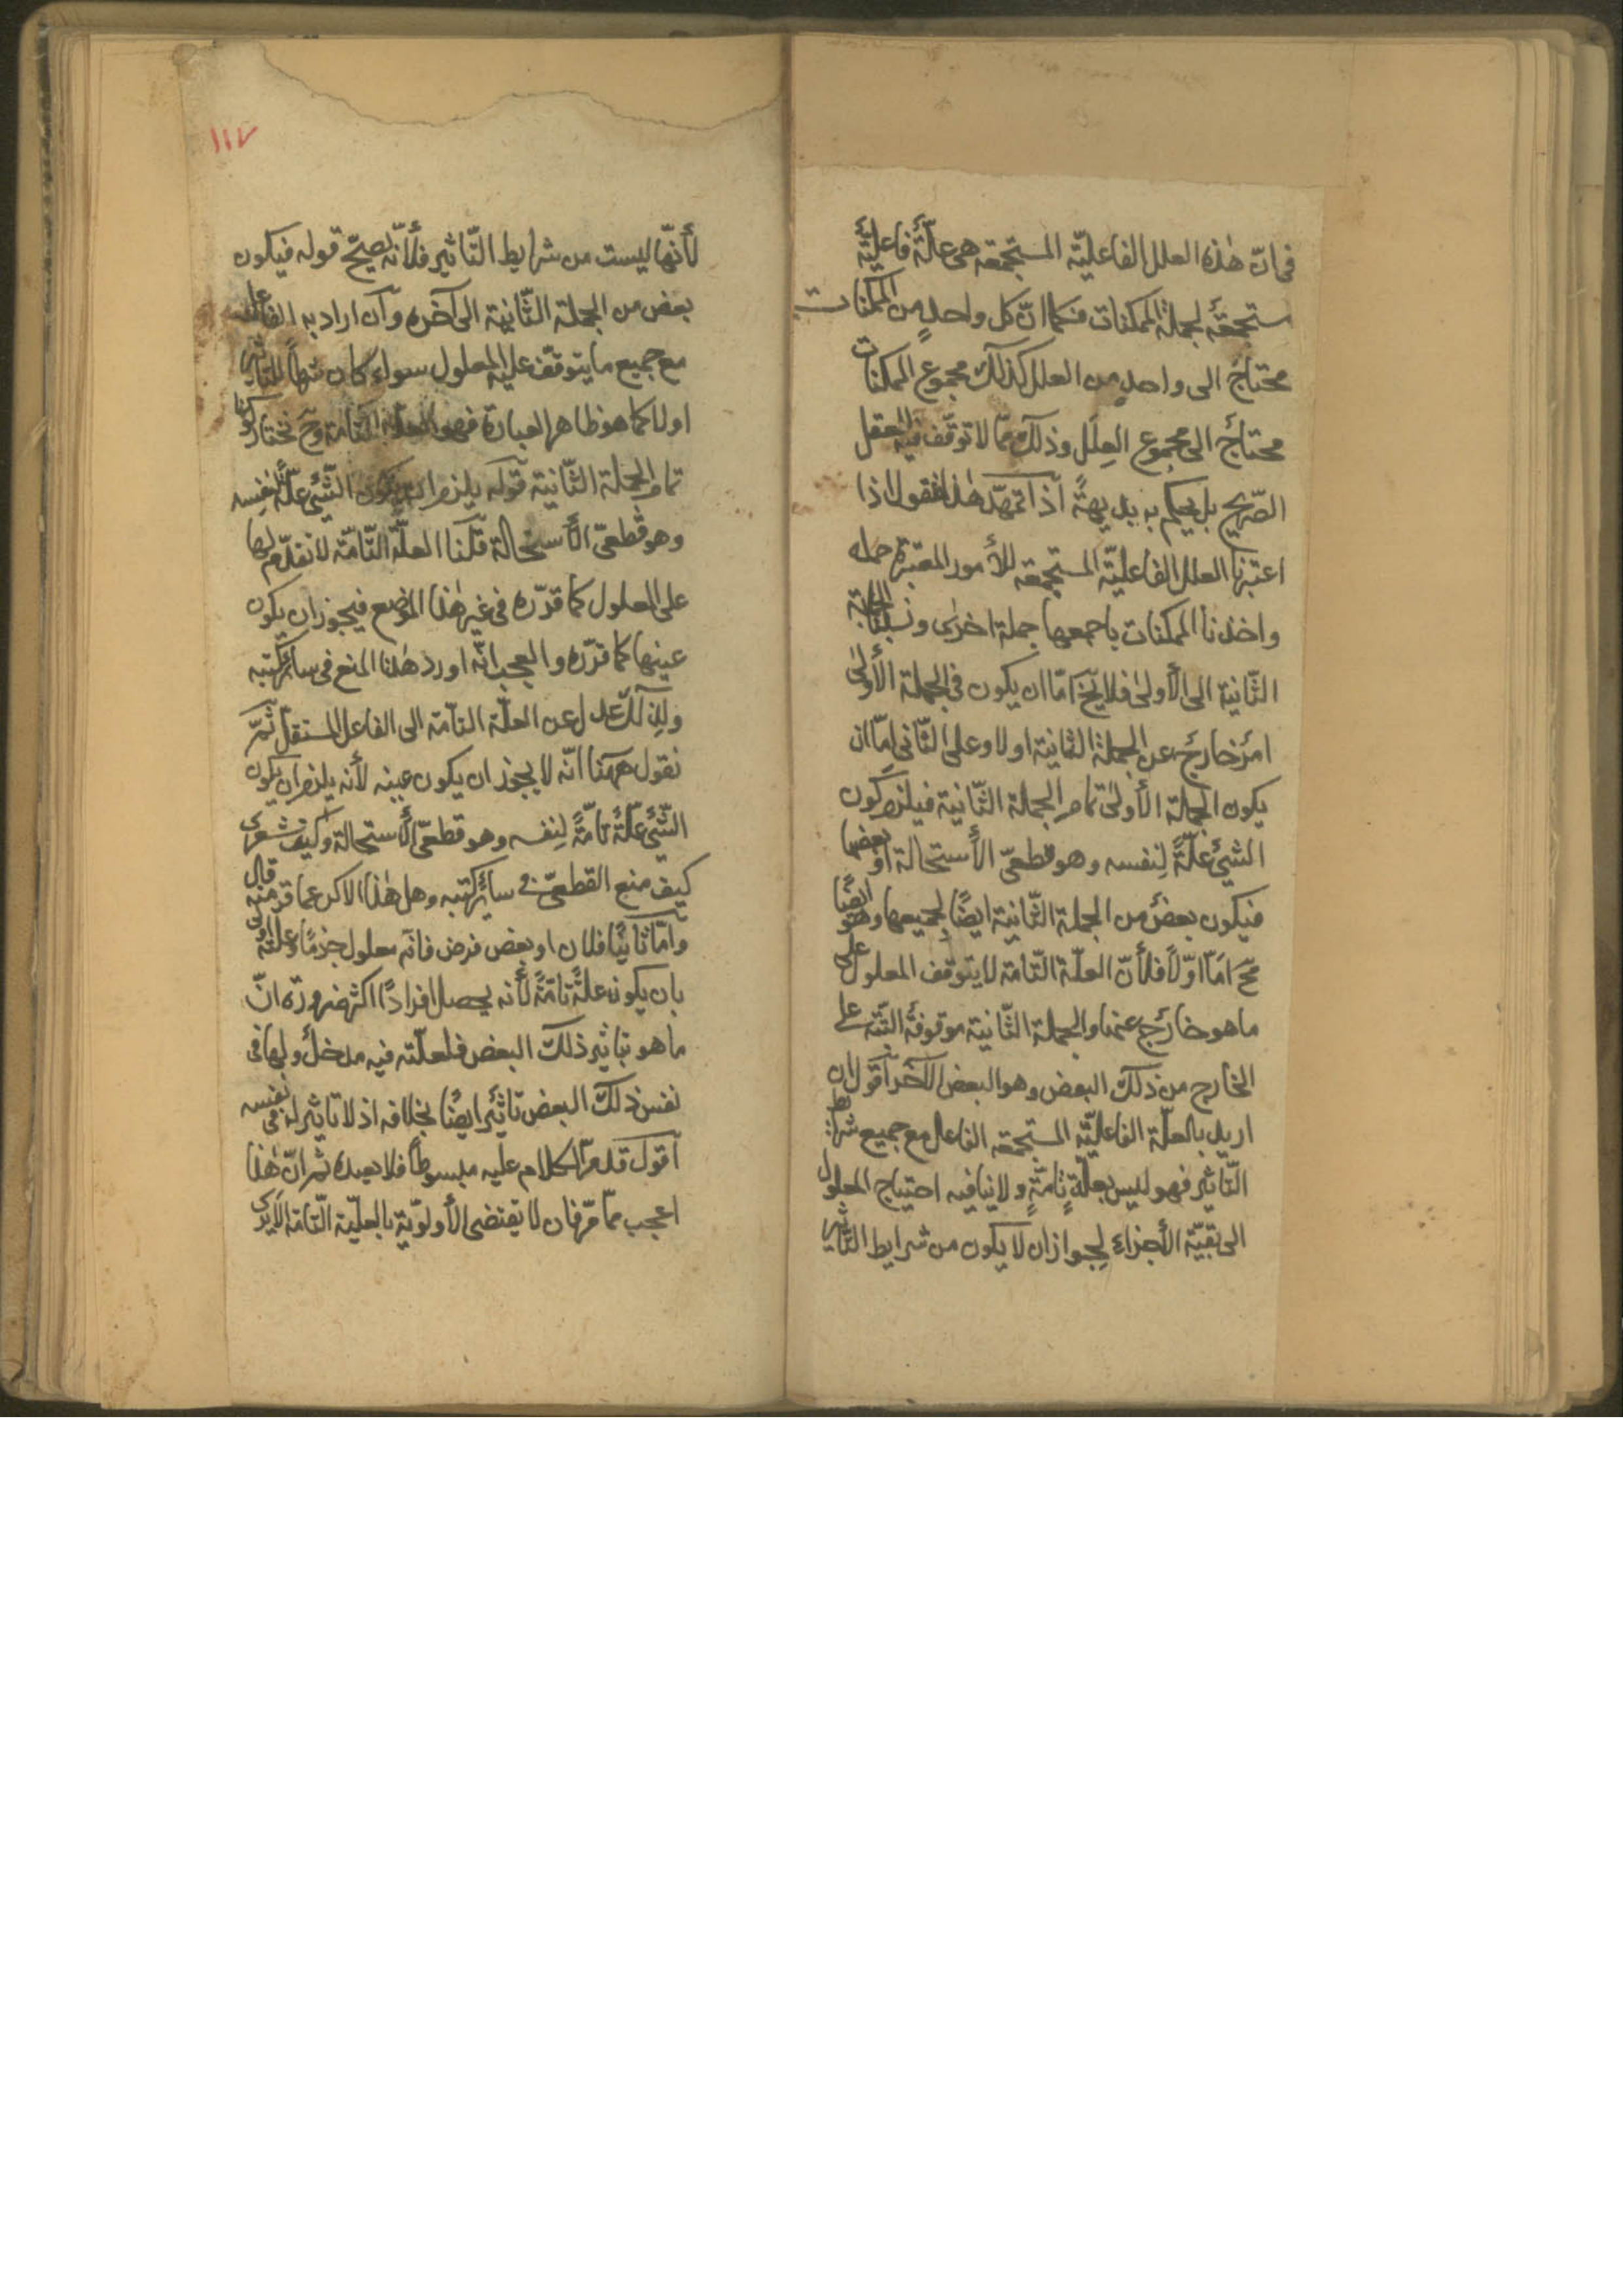 فى انّ هٰذه العلل الفاعليّة المستجمعة هى علّةٌ فاعليّةٌ
مستجمعةٌ لجملة الممكنات فكما انّ كل واحدٍ من الممكنات
محتاج الى واحدٍ من العلل كذلك مجموع الممكنات
محتاجٌ الى مجموع العِلَل وذلك ممّا لا توقّف فيه للعقل
الصّريح بل يحكم به بديهةً اذا تمهّد هٰذا فنقول اذا
اعتبرنا العلل الفاعليّة المستجمعة للأمور المعتبرة جملة
واخذنا الممكنات باجمعها جملة اخرى ونسبنا الجملة
الثّانية الى الأولىٰ فلا يخ امّا ان يكون فى الجملة الأولىٰ
امرٌ خارجٌ عن الجملة الثانية اولا وعلى الثّانى امّا ان
يكون الجملة الأولىٰ تمام الجملة الثّانية فيلزم كون
الشيئ علّةً لِنفسه وهو قطعىّ الأستحالة او بعضها
فيكون بعضٌ من الجملة الثّانية ايضًا لجميعها وهو ايضًا
مح امّا اوّلاً فلأنّ العلّة التّامة لا يتوقّف المعلول على
ما هو خارجٌ عنها والجملة الثّانية موقوفةٌ البتّة على
الخارج من ذلك البعض وهو البعض الآخر اقول ان
اريد بالعلّة الفاعليّة المستجمعة الفاعل مع جميع شرايط
التّاثير فهو ليس بعلّةٍ تامّةٍ ولا ينافيه احتياج المعلول
الى بقيّة الأجزاء لِجواز ان لا يكون من شرايط التّاثير
١١٧
لأنّها ليست من شرايط التّاثير فلأنّه يصحّ قوله فيكون
بعض من الجملة الثّانية الى آخره وان اراد به الفاعل
مع جميع ما يتوقّف عليه المعلول سواء كان شرطاً للتاثير
اولا كما هو ظاهر العبارة فهو العلّة التّامة وح نختار كونها
تمام الجملة الثّانية قوله يلزم ان يكون الشّيئ علّةً لنفسه
وهو قطعىّ الأستحالة قلنا العلّة التّامّة لا تقدّم لها
على المعلول كما قدّره فى غير هٰذا الموضع فيجوز ان يكون
عينها كما قرّره والعجب انّه اورد هٰذا المنع فى سائر كتبه
ولذلك عدل عن العلّة التّامة الى الفاعل المستقلّ ثمّ
نقول ههنا انّه لا يجوز ان يكون عينه لأنه يلزم ان يكون
الشّيئ علّةً تامّةً لِنفسه وهو قطعىّ الأستحالة وليت شعرى
كيف منع القطعىّ فى سائر كتبه وهل هٰذا الا كرّ عما فرّ منه قال
وامّا ثانيًا فلان اىّ بعض فرض فانّه معلول جزمًا وعلّته اولى
بان يكون علّةً تامّةً لأنّه يحصل افرادًا اكثر ضرورة انّ
ما هو بتاثير ذلك البعض فلعلّته فيه مدخلٌ ولها فى
نفس ذلك البعض تاثيرٌ ايضًا بخلافه اذ لا تاثير له فى نفسه
اقول قد مرّ الكلام عليه مبسوطاً فلا نعيده ثمّ انّ هٰذا
اعجب ممّا مرّ فان لا يقتضى الأولويّة بالعلّية التّامة الا يرى